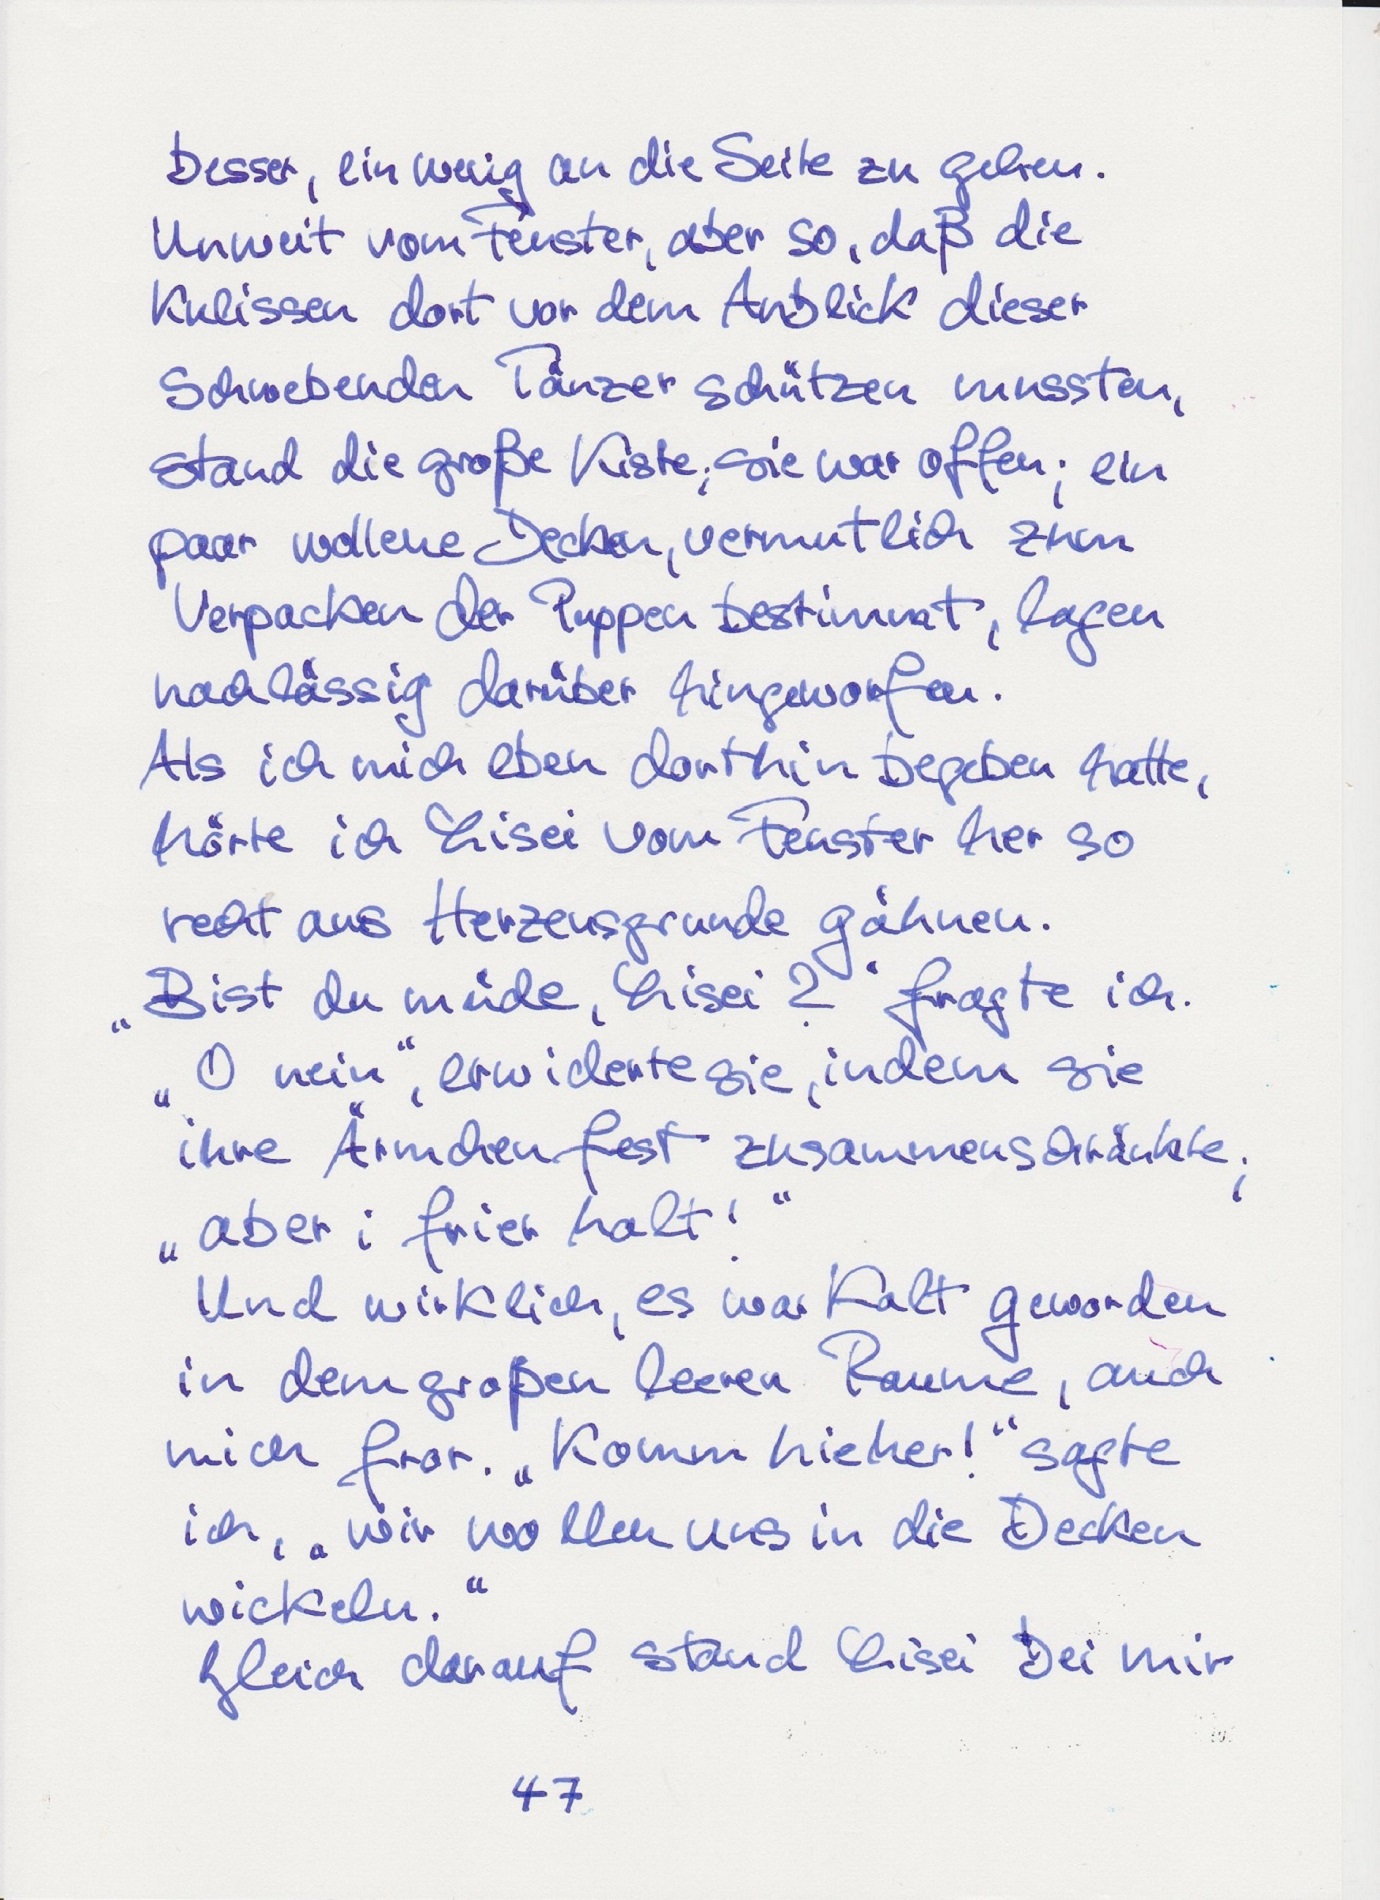 besser, ein wenig an die Seite zu gehen.
Unweit vom Fenster, aber so, daß die
Kulissen dort vor dem Anblick dieser
schwebenden Tänzer schützen mussten,
stand die große Kiste; sie war offen; ein
paar wollene Decken, vermutlich zum
Verpacken der Puppen bestimmt, lagen
nachlässig darüber hingeworfen.
Als ich mich eben dorthin begeben hatte,
hörte ich Lisei vom Fenster her so
recht aus Herzensgrunde gähnen.
„Bist du müde, Lisei?“ fragte ich.
„O nein“, erwiderte sie, indem sie
ihre Ärmchen fest zusammenschränkte;
„aber i frier halt!“
Und wirklich, es war kalt geworden
in dem großen leeren Raume, auch
mich fror. „Komm hieher!“ sagte
ich, „wir wollen uns in die Decken
wickeln.“
Gleich darauf stand Lisei bei mir
47